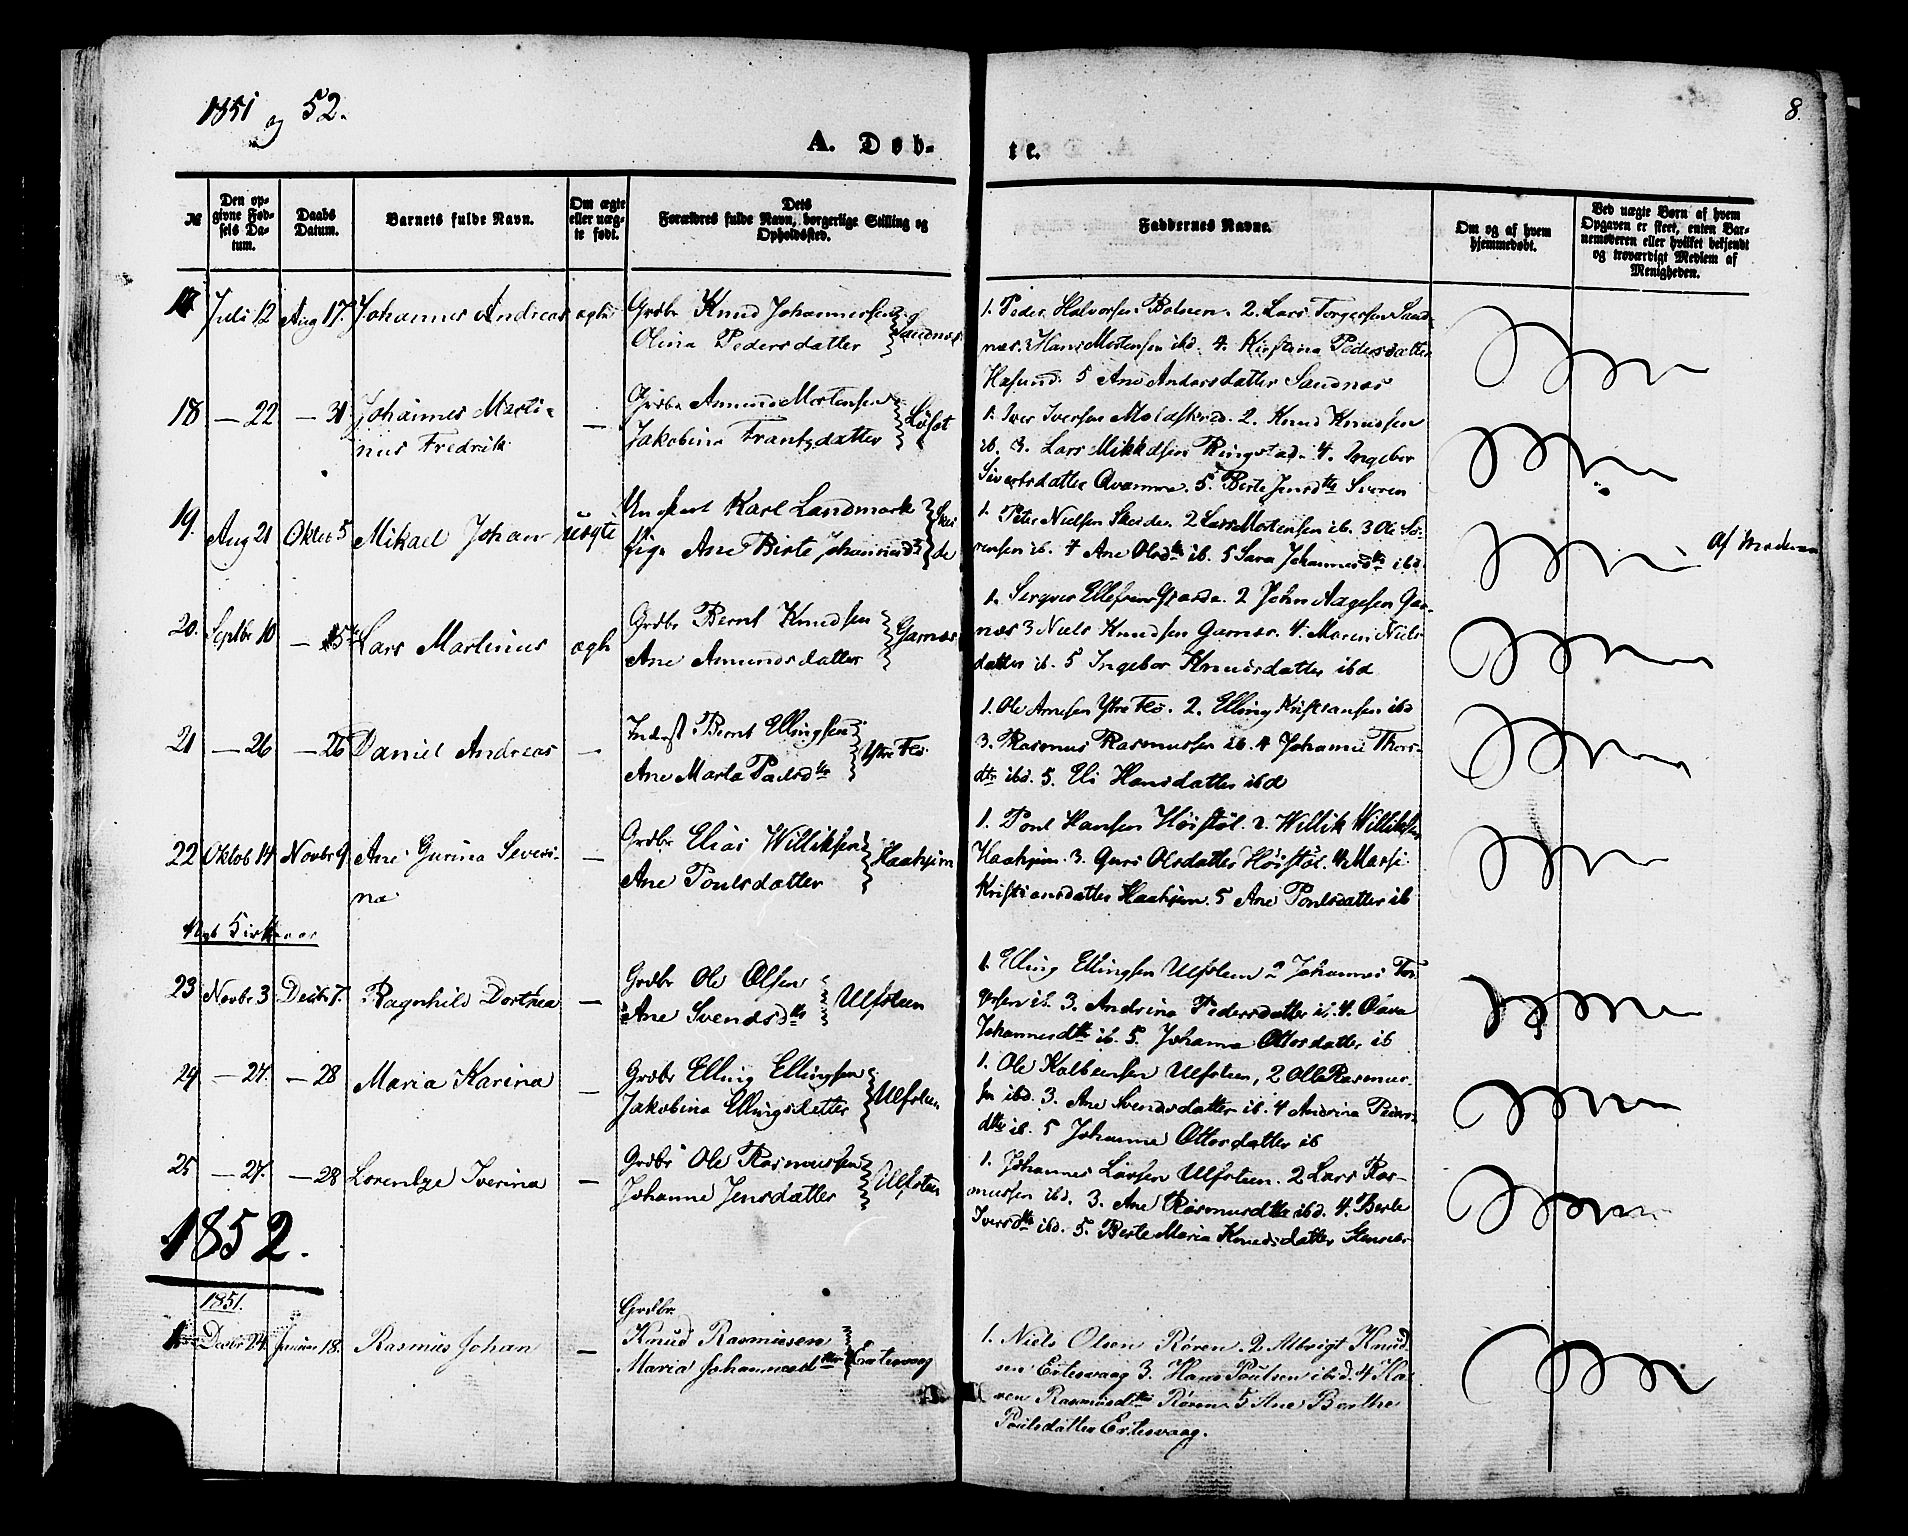 1851 og 52.
8.
A. Døb-
te.
№
Den opgivne Fødsels Datum.
Daabs Datum.
Barnets fulde Navn.
Om ægte eller uægte født.
Dets Forældres fulde Navn, borgerlige Stilling og Opholdssted.
Faddernes Navne.
Om og af hvem hjemmedøbt.
Ved uægte Børn af hvem Opgaven er skeet, enten Barnemoderen eller hvilket bekjendt og troværdigt Medlem af Menigheden.
17 Juli 12 Aug 17 Johannes Andreas ægte Grdbr Knud Johannessen Sandnæs
Olina Pedersdatter
1. Peder Halvorsen 2. Lars Torgersen Sand-
næs. 3 Hans Mortensen ibd. 4. Kirstina Pedersdatter
Hasund. 5 Ane Andersdatter Sandnæs
18 — 22 — 31 Johannes Marti- — Grdbr Amund Mortensen Løset
nus Fredrik Jakobine Frantzdatter
1. Iver Iversen Moldskred. 2. Knud Knudsen
ib. 3. Lars Mikkelsen Ringstad. 4. Ingebor
Sivertsdatter Qvamme. 5. Berte Jensdtr
19. Aug 21 Oktob 5 Mikael Johan uægte Ungkarl Karl Landmark Skei-
Pige Ane Birte Johannesdtr de
1. Peter Nielsen Skeide. 2 Lars Mortensen ib. 3 Ole Sö-
rensen ib. 4 Ane Olsdtr ib. 5 Sara Johannesdtr ibd.
Af Moderen
20. Septbr 10 — 5 Lars Martinus ægte Grdbr Bernt Knudsen Garnæs
Ane Amundsdatter
1. Ellefsen 2 John Aagesen Gar-
næs 3 Niels Knudsen Garnæs. 4. Maren Niels-
datter ib. 5 Ingebor Knudsdatter ibd
21 — 26 — 26 Daniel Andreas — Inderst Bernt Ellingsen Ytre Flö
Ane Marta Paulsdtr
1. Ole Arnesen Ytre Flö. 2. Elling Kristiansen ibd
3. Rasmus Rasmussen ib. 4 Johanne Thors-
dtr ibd. 5. Eli Hansdatter ibd
22 Oktob 14 Novbr 9 Ane Gurina Severi- — Grdbr Elias Williksen Haahjem
na Ane Poulsdatter
1. Poul Hansen Höistöl. 2. Willik Williksen
Haahjem. 3. Guri Olsdatter Höistöl. 4. Massi
Kristiansdatter Haahjem. 5 Ane Poulsdatter ib
23 Novbr 3 Decbr 7. Ragnhild Dorthea — Grdbr Ole Olsen Ulfsteen
Ane Svendsdtr
1. Elling Ellingsen Ulfsteen 2 Johannes Tor-
gersen ib. 3. Andrina Pedersdatter ib. 4. Oava
Johannesdtr ib. 5. Johanna Ottersdatter ib
24 — 27. — 28 Maria Karina — Grdbr Elling Ellingsen Ulfsteen
Jakobina Ellingsdatter
1. Ole Kolbensen Ulfsteen, 2 Ole Rasmus-
sen ibd. 3. Ane Svendsdatter ib. 4 Andrina Peders-
dtr ib. 5 Johanne Ottersdatter ib
25 — 27. — 28 Lorentze Iverina — Grdbr Ole Rasmussen Ulfsteen
Johanne Jensdatter
1. Johannes Larsen Ulfsteen. 2 Lars Ras-
mussen ibd. 3. Ane Rasmusdtr ibd. 4. Berte
Iversdtr ibd. 5. Berte Maria Knudsdatter
1852.
1851.
1 Decbr 24. Januar 18. Rasmus Johan — Grdbr.
Knud Rasmussen Ertesvaag
Maria Johannesdtr
1. Niels Olsen Røren. 2 Albrigt Knud-
sen Ertesvaag 3. Hans Poulsen ibid. 4 Ka-
ren Rasmusdtr Røren 5 Ane Berthe
Poulsdatter Ertesvaag.